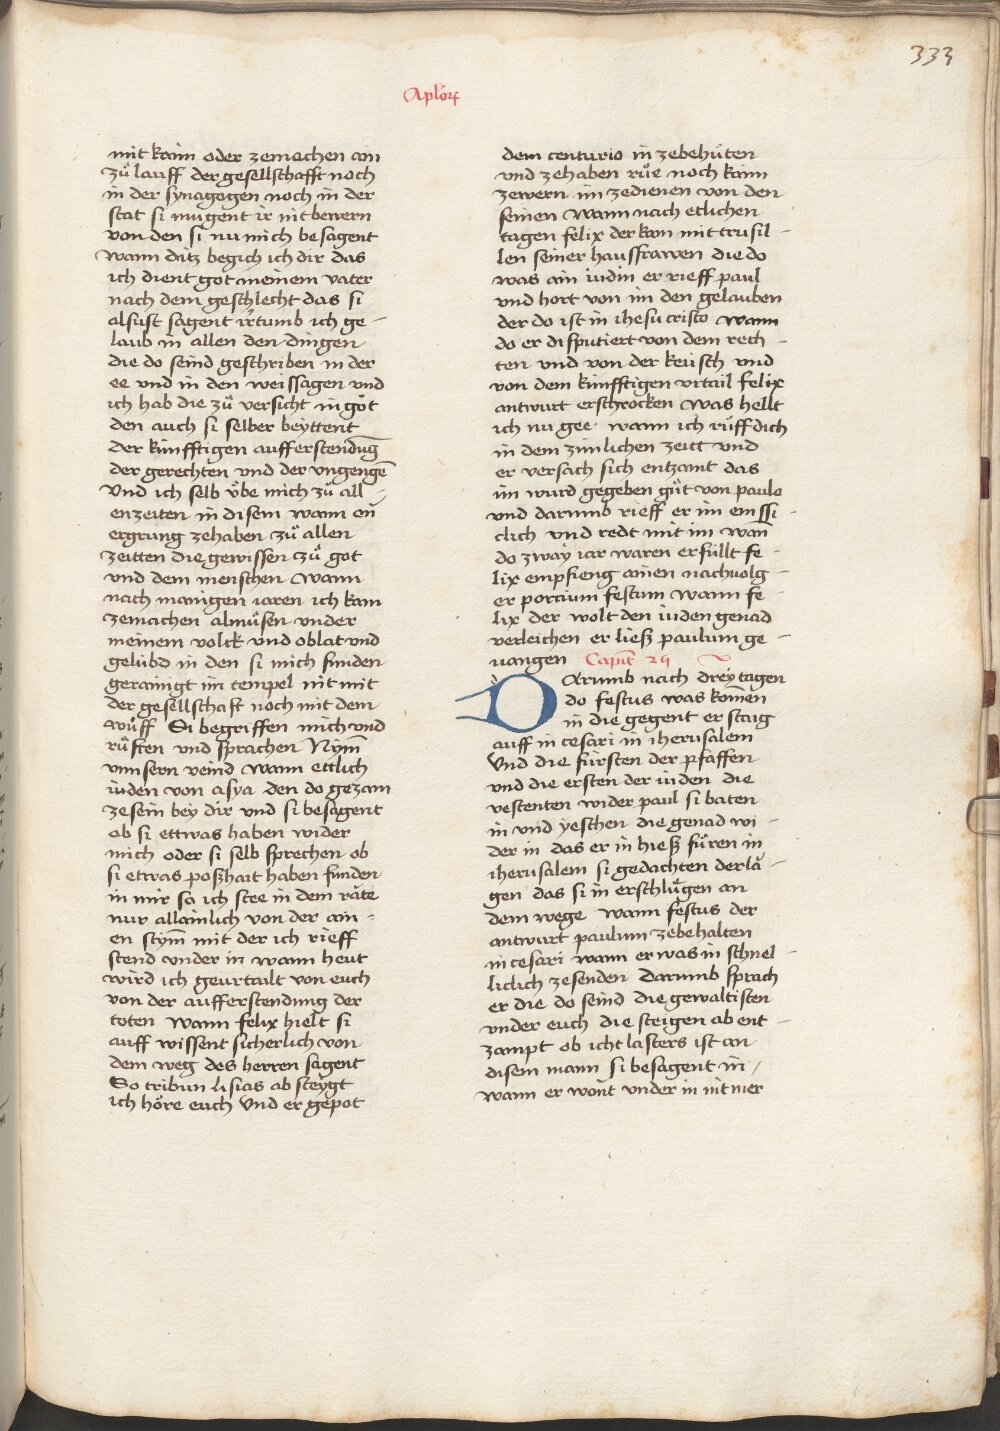 333
Aplõꝝ
mit kaim oder zemachen ain
zů lauff der gesellschafft noch
in der synagogen noch in der
stat si mugent ir nit bewern
von den si nu mich besagent
wann ditz begich ich dir das
ich dient got meinem vater
nach dem geschlecht das si
alsust sagent irrtumb ich ge-
laub in allen den dingen
die do seind geschriben in der
ee vnd in den weissagen vnd
ich hab die zů versicht in got
den auch si selber beyttent
der kinfftigen aufferstendūg
der gerechten vnd der vngengē
Vnd ich selb vͤbe mich zů all-
enzeiten in disem wann on
ergrung zehaben zů allen
zeitten die gewissen zů got
vnd dem menschen Wann
nach manigen iaren ich kam
zemachen almůsen vnder
meinem volck vnd oblat vnd
gelübd in den si mich funden
gerainigt im tempel nit mit
der gesellschaft noch mit dem
wůff Si begriffen mich vnd
růften vnd sprachen Nym̄
vnnsern veind Wann ettlich
iuden von asya den do gezam
zesein bey dir vnd si besagent
ob si ettwas haben wider
mich oder si selb sprechen ob
si etwas poßhait haben funden
in mir so ich stee in dem räte
nur allainlich von der ain-
en stym̄ mit der ich rieff
stend vnder in wann heut
wird ich geurtailt von euch
von der aufferstendung der
toten Wann felix hielt si
auff wissent sicherlich von
dem weg des herren sagent
So tribun lisias ab steygt
ich höre euch Vnd er gepot
dem centurio in zebehůten
vnd zehaben růe noch kaim
zewern im zedienen von den
seinen Wann nach etlichen
tagen felix der kom mit trusil-
len seiner haussfrawen die do
was ain iudin er rieff paul
vnd hort von im den gelauben
der do ist in ihesu cristo Wann
do er disputiert von dem rech-
ten vnd von der keüsch vnd
von dem kinfftigen vrtail felix
antwurt erschrocken Was hellt
ich nu gee. wann ich růff dich
in dem zimlichen zeitt vnd
er versach sich entzamt das
im wurd gegeben gůt von paulo
vnd darumb rieff er im emssi-
clich vnd redt mit im Wañ
do zway iar waren erfüllt fe-
lix empfieng ainen nachuolg-
er portium festum Wann fe-
lix der wolt den iuden genad
verleichen er ließ paulum ge-
uangen Capit̄ 25
Darumb nach drey tagen
do festus was kom̄en
in die gegent er staig
auff in cesari in iherusalem
Vnd die fürsten der pfaffen
vnd die ersten der iuden die
vestenten wider paul si baten
in vnd yeschen die genad wi-
der in das er in hieß fůren in
iherusalem si gedachten der lä-
gen das si in erschlůgen an
dem wege Wann festus der
antwurt paulum zebehalten
in cesari wann er was in schnel-
liclich zesenden Darumb sprach
er die do seind die gewaltisten
vnder euch die steigen ab ent-
zampt ob icht lasters ist an
disem mann si besagent in
wann er wont vnder in nit mer